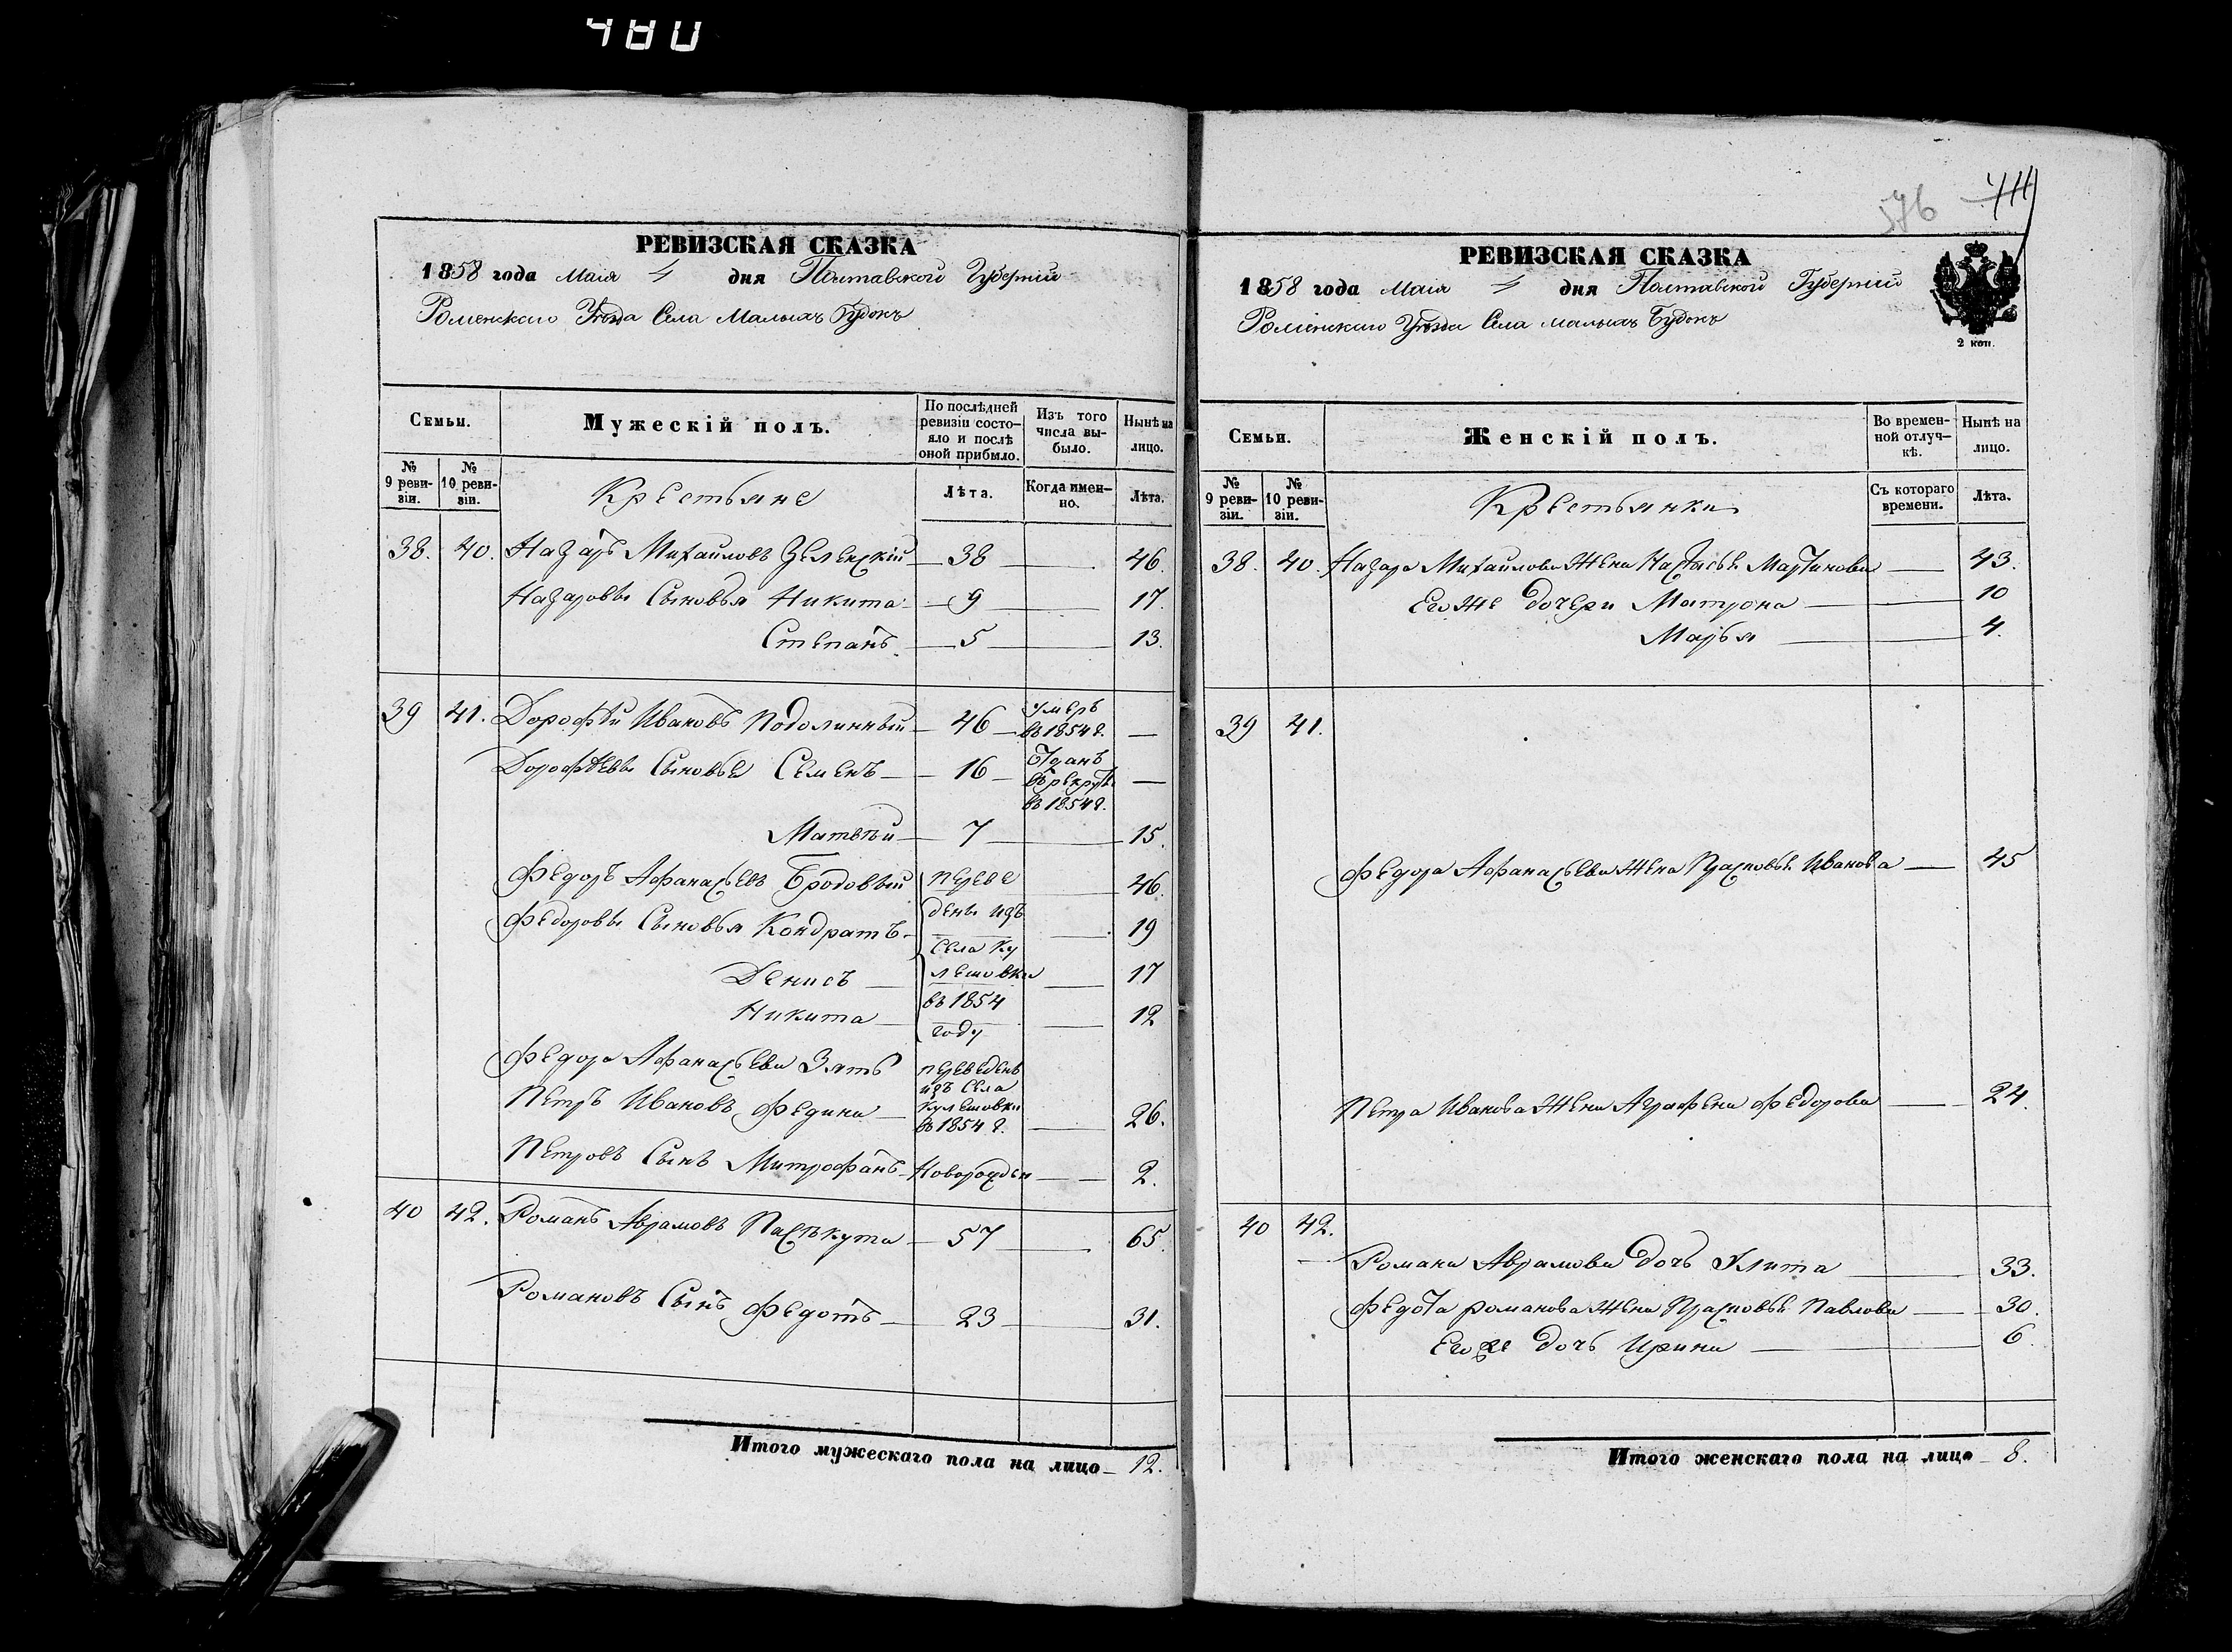 480
РЕВИЗСКАЯ СКАЗКА
1858 года Маія 4 дня Полтавской Губерніи
Роменскаго Уѣзда Села Малыхъ Будокъ
Семьи.
Мужескій полъ.
По послѣдней ревизіи состо-
яло и послѣ оной прибыло.
Изъ того числа вы-
было.
Нынѣ на лицо.
№ 9 реви-
зіи.
№ 10 реви-
зіи.
Крестьяне
Лѣта.
Когда имен-
но.
Лѣта.
38. 40. Назаръ Михайловъ Зеленскій 38 46.
Назаровы Сыновья Никита 9 17.
Степанъ 5 13.
39 41. Дорофѣй Ивановъ Подолинный 46 умеръ въ 1854 г.
Дорофѣевы Сыновья Семенъ 16 Отданъ въ рекруты въ 1854 г.
Матвѣй 7 15.
Федоръ Афанасьевъ Бродовый переве 46.
Федоровы Сыновья Кондратъ дены изъ 19
села Ку
Денисъ лешовки 17
Никита въ 1854 12
году
Федора Афанасьева Зять переведенъ
изъ села
Петръ Ивановъ Федина Кулешовки 26.
въ 1854 г.
Петровъ Сынъ Митрофанъ Новорожден 2.
40 42. Романъ Аврамовъ 57 65.
Романовъ Сынъ Федотъ 23 31.
Итого мужескаго пола на лицо 12.
576 711
РЕВИЗСКАЯ СКАЗКА
1858 года Маія 4 дня Полтавской Губерніи
Роменскаго Уѣзда Села малыхъ Будокъ
2 коп.
Семьи.
Женскій полъ.
Во времен-
ной отлуч-
кѣ.
Нынѣ на лицо.
№ 9 реви-
зіи.
№ 10 реви-
зіи.
Крестьянки
Съ котораго времени.
Лѣта.
38. 40. Назара Михайлова Жена Настасья Мартинова 43.
Его Же дочери Матрона 10
Марья 4.
39 41.
Федора Афанасьева Жена Прасковья Иванова 45
Петра Иванова Жена Аграфена Федорова 24.
40 42.
Романа Аврамова дочь Улита 33.
Федота романова Жена Прасковья Павлова 30.
Его же дочь Ирина 6.
Итого женскаго пола на лицо 8.